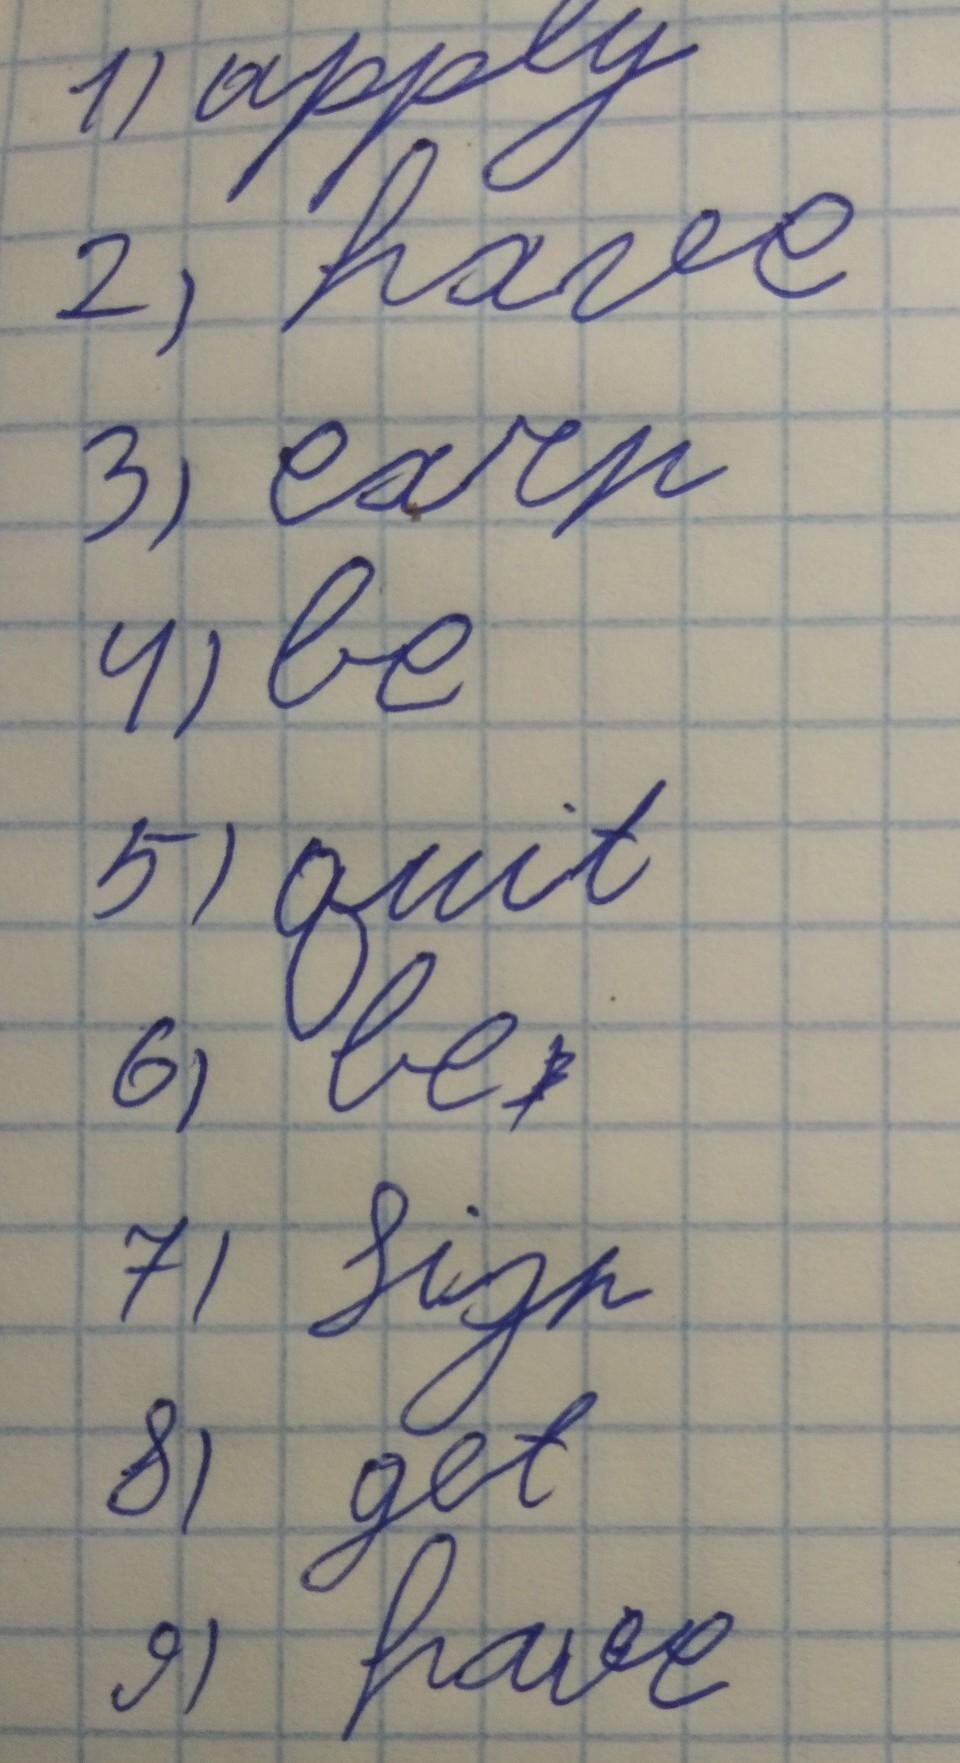 1) apply
2) have
3) earn
4) be
5) quit
6) be
7) sign
8) get
9) have